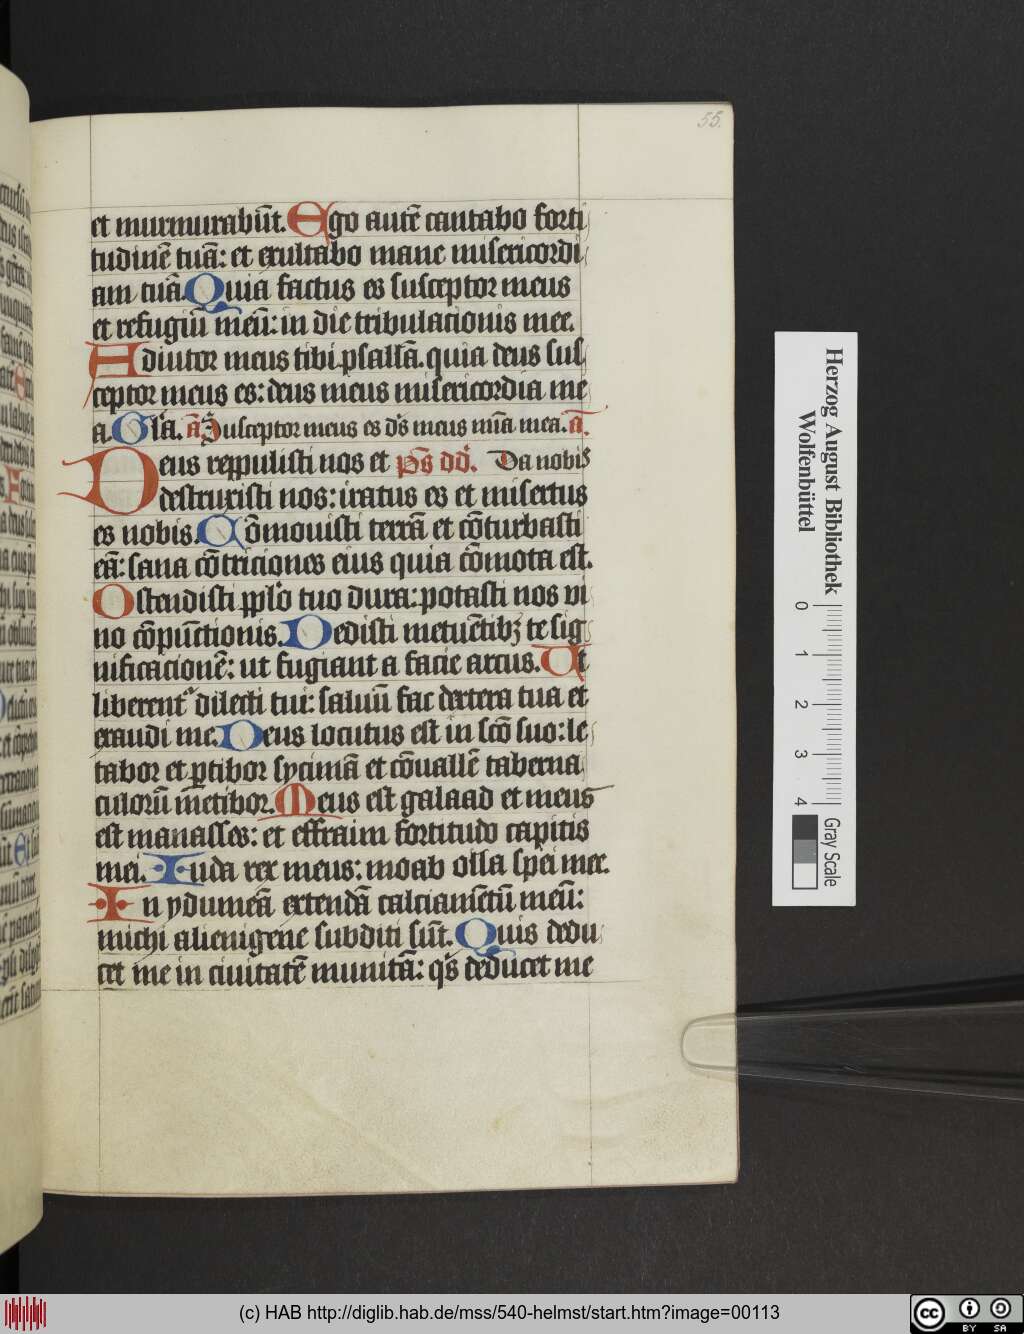 55.
et murmurabūt. Ego autē cantabo forti
tudinē tuā: et exultabo mane misericordi
am tuā. Quia factus es susceptor meus
et refugiū meū: in die tribulacionis mee.
Adiutor meus tibi psallā. quia deus sus
ceptor meus es: deus meus misericordia me
a. Gla. a Susceptor meus es ds meus mīa mea. a.
Deus reppulisti nos et ps dd. Da nobis
destruxisti nos: iratus es et misertus
es nobis. Cōmouisti terrā et cōturbasti
eā: sana cōtriciones eius quia cōmota est.
Ostendisti pplo tuo dura: potasti nos vi
no cōpūctionis. Dedisti metuētibꝫ te sig
nificacionē: ut fugiant a facie arcus. Ut
liberent dilecti tui: saluū fac dextera tua et
exaudi me. Deus locutus est in scō suo: le
tabor et ꝑtibor sycimā et cōuallē taberna
culorū metibor. Meus est galaad et meus
est manasses: et effraim fortitudo capitis
mei. Iuda rex meus: moab olla spei mee.
In ydumeā extendā calciamētū meū:
michi alienigene subditi sūt. Quis dedu
cet me in ciuitatē munitā: qs deducet me
Herzog August Bibliothek
Wolfenbüttel
0 1 2 3 4
Gray Scale
(c) HAB http://diglib.hab.de/mss/540-helmst/start.htm?image=00113
cc BY SA